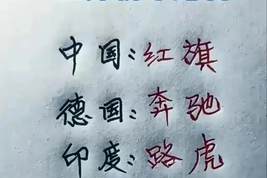 中国:红旗
德国:奔驰
印度:路虎